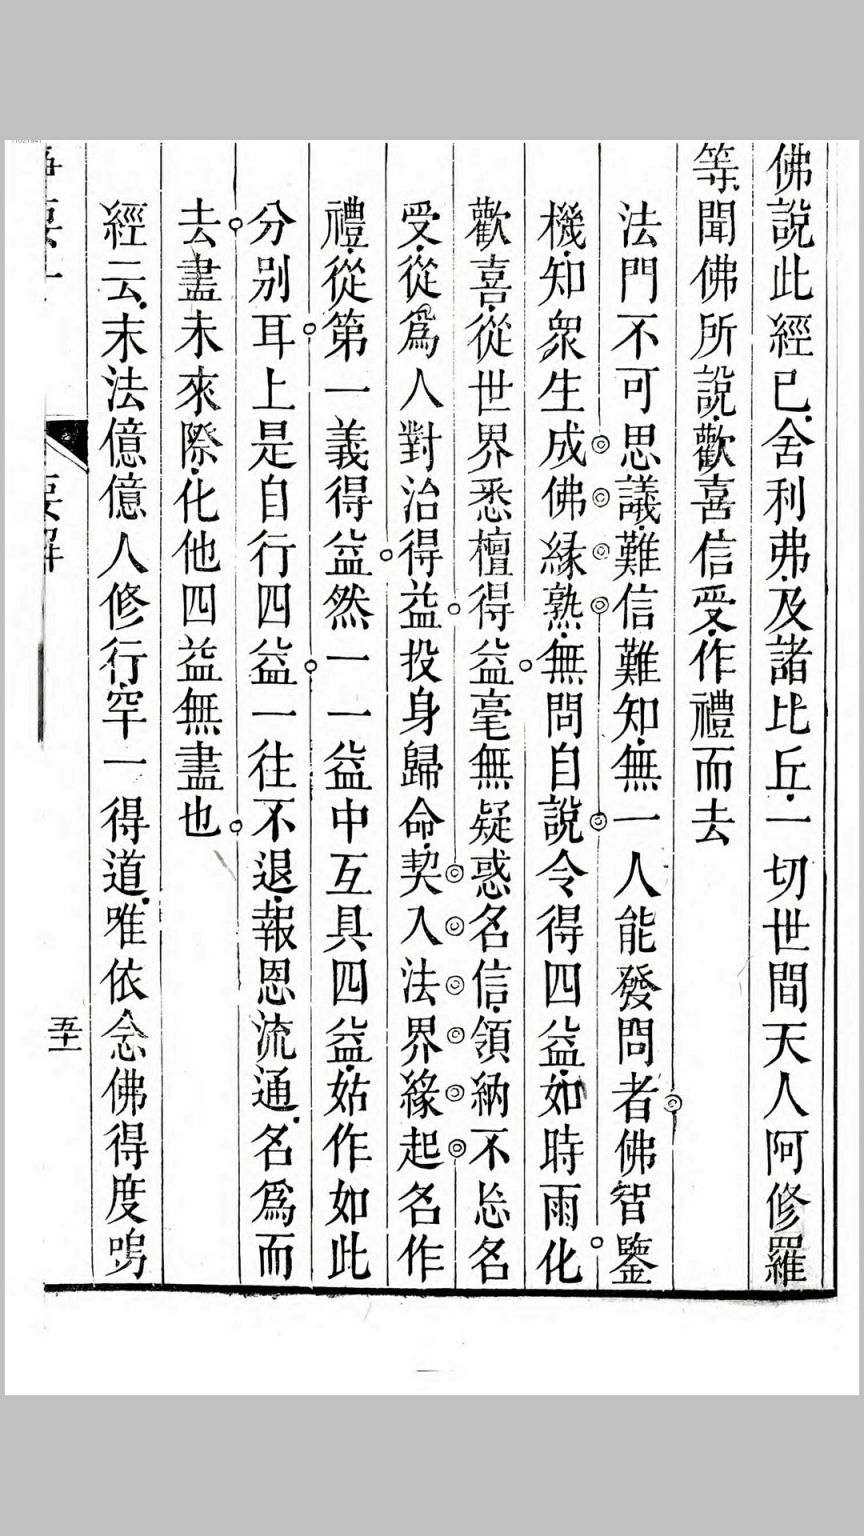 佛說此經已舍利弗及諸比丘一切世間天人阿修羅
等聞佛所說歡喜信受作禮而去
法門不可思議難信難知無一人能發問者佛智鑒
機知衆生成佛緣熟無問自說令得四益如時雨化
歡喜從世界悉檀得益毫無疑惑名信領納不忘名
受從爲人對治得益投身歸命契入法界緣起名作
禮從第一義得益然一一益中互具四益姑作如此
分別耳上是自行四益一往不退報恩流通名爲而
去盡未來際化他四益無盡也
經云末法億億人修行罕一得道唯依念佛得度嗚
要解
五十一